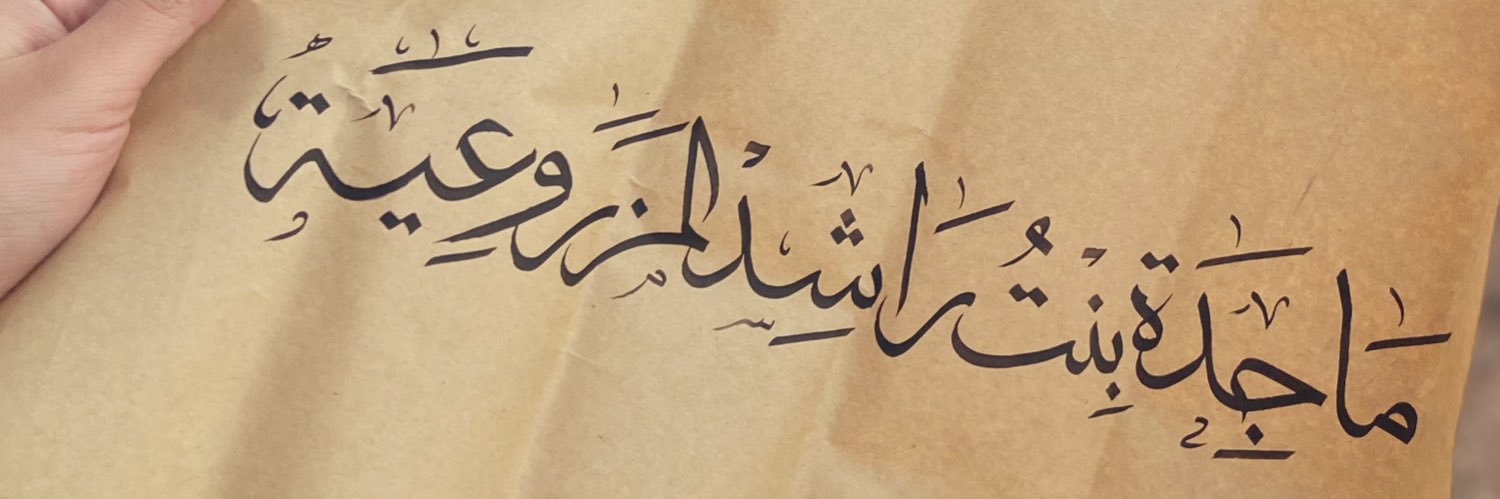 مَاجِدَة بِنْتُ رَاشِدْ المَزرُوعِيَّة